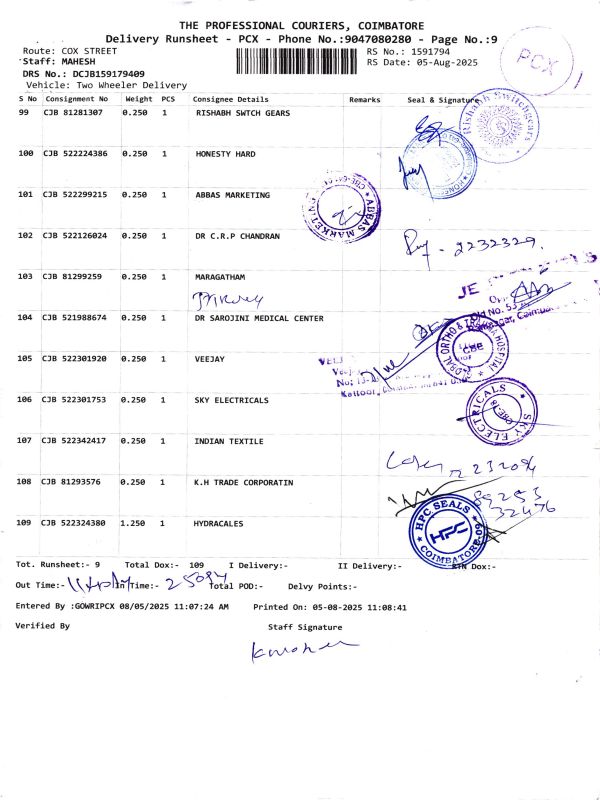 THE PROFESSIONAL COURIERS, COIMBATORE
Delivery Runsheet - PCX - Phone No.:9047080280 - Page No.:9
Route: COX STREET RS No.: 1591794
Staff: MAHESH RS Date: 05-Aug-2025
DRS No.: DCJB159179409
Vehicle: Two Wheeler Delivery
PCX
S No Consignment No Weight PCS Consignee Details Remarks Seal & Signature
99 CJB 81281307 0.250 1 RISHABH SWTCH GEARS
Rishabh Switchgears
100 CJB 522224386 0.250 1 HONESTY HARD
101 CJB 522299215 0.250 1 ABBAS MARKETING
ABBAS MARKETING
102 CJB 522126024 0.250 1 DR C.R.P CHANDRAN
2232329.
103 CJB 81299259 0.250 1 MARAGATHAM
104 CJB 521988674 0.250 1 DR SAROJINI MEDICAL CENTER
Old No. 53
ORTHO & TRAUMA HOSPITAL
CBE
105 CJB 522301920 0.250 1 VEEJAY
Kattoor,
106 CJB 522301753 0.250 1 SKY ELECTRICALS
SKY ELECTRICALS
CBE-18
107 CJB 522342417 0.250 1 INDIAN TEXTILE
108 CJB 81293576 0.250 1 K.H TRADE CORPORATIN
89253
32476
109 CJB 522324380 1.250 1 HYDRACALES
HPC SEALS
HPC
COIMBATORE
Tot. Runsheet:- 9 Total Dox:- 109 I Delivery:- II Delivery:- RTN Dox:-
Out Time:- In Time:- Total POD:- Delvy Points:-
Entered By :GOWRIPCX 08/05/2025 11:07:24 AM Printed On: 05-08-2025 11:08:41
Verified By Staff Signature